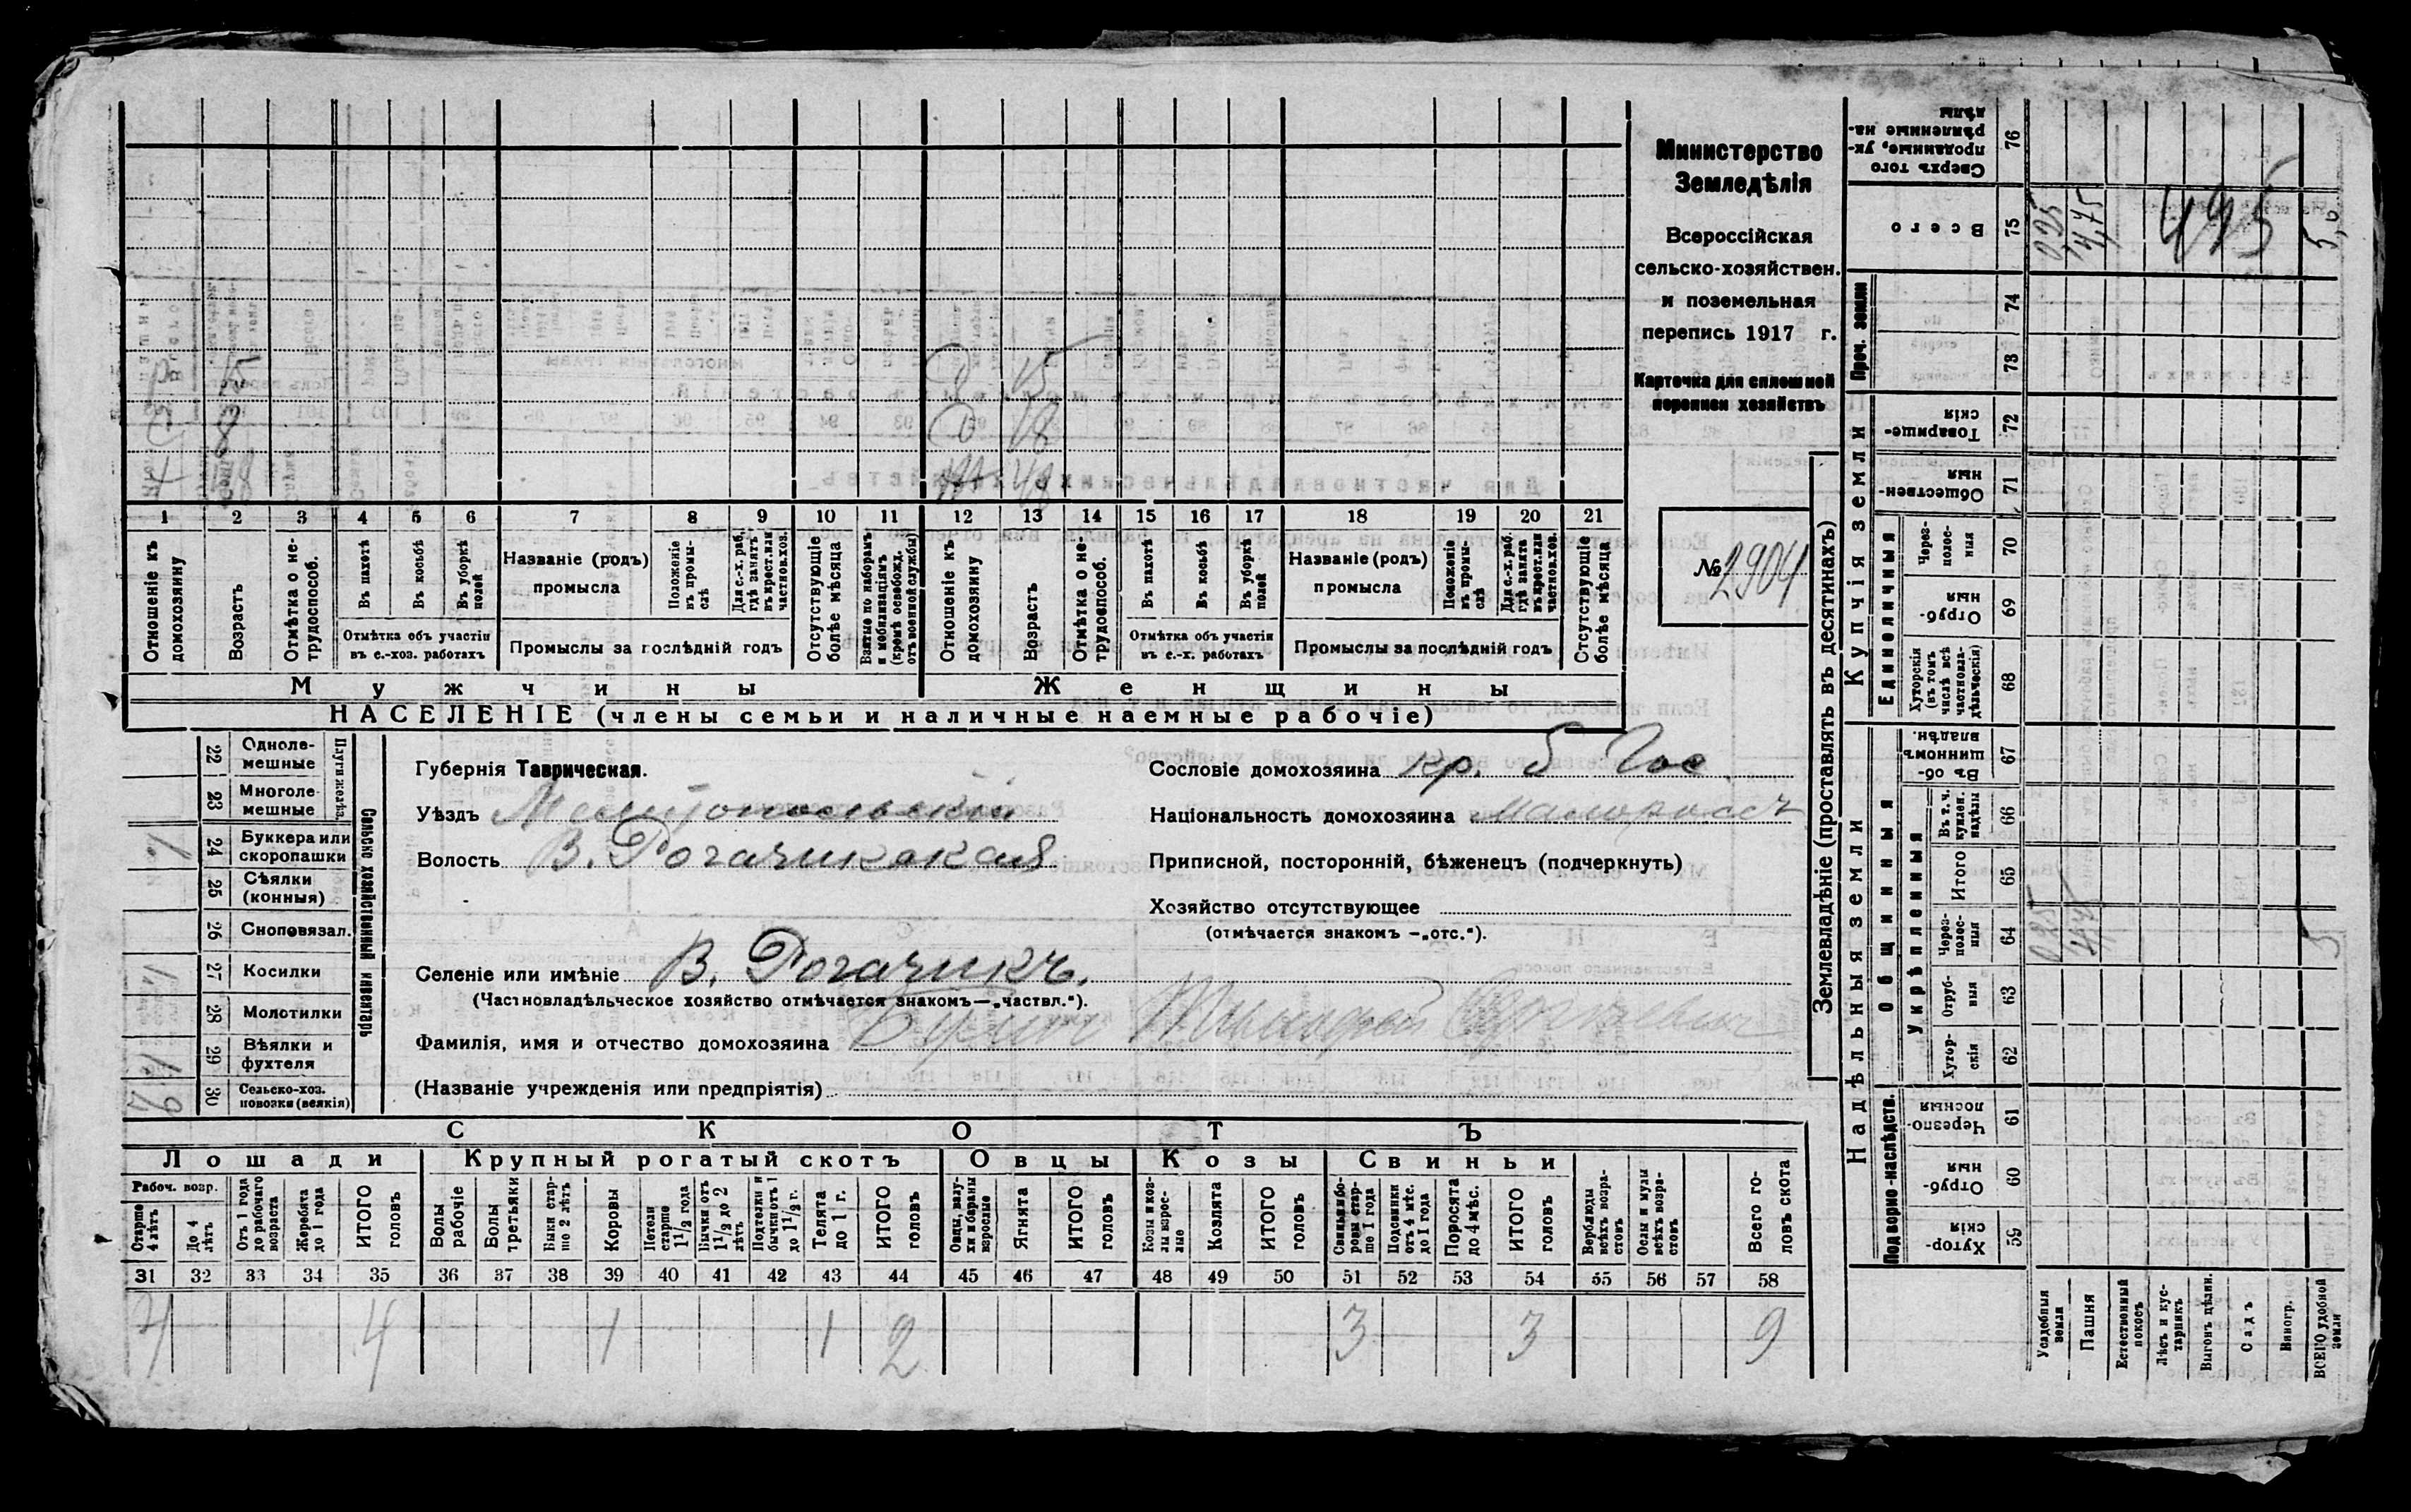 Министерство
Земледѣлія
Всероссійская
сельско-хозяйствен.
и поземельная
перепись 1917 г.
Карточка для сплошной
переписи хозяйствъ
№ 2904
8 15
18
48
1 2 3 4 5 6 7 8 9 10 11 12 13 14 15 16 17 18 19 20 21
Отношеніе къ домохозяину
Возрастъ
Отмѣтка о нетрудоспособ.
Въ пахотѣ
Въ косьбѣ
Въ уборкѣ полей
Отмѣтка объ участіи въ с.-хоз. работахъ
Названіе (родъ) промысла
Положеніе въ промыслѣ
Для с.-х. раб. гдѣ занятъ въ крест. или частнов. хоз.
Промыслы за послѣдній годъ
Отсутствующіе болѣе мѣсяца
Взятые по наборамъ и мобилизаціямъ (кромѣ освобожд. отъ военной службы)
Отношеніе къ домохозяину
Возрастъ
Отмѣтка о нетрудоспособ.
Въ пахотѣ
Въ косьбѣ
Въ уборкѣ полей
Отмѣтка объ участіи въ с.-х. работахъ
Названіе (родъ) промысла
Положеніе въ промыслѣ
Для с.-х. раб. гдѣ занята въ крест. или частнов. хоз.
Промыслы за послѣдній годъ
Отсутствующіе болѣе мѣсяца
Мужчины Женщины
НАСЕЛЕНІЕ (члены семьи и наличные наемные рабочіе)
Сельско хозяйственный инвентарь
Плуги желѣз.
22 Однолемешные
23 Многолемешные
24 Буккера или скоропашки 1
25 Сѣялки (конныя)
26 Сноповязал.
27 Косилки 1
28 Молотилки
29 Вѣялки и фухтеля 1
30 Сельско-хоз. повозки (всякія)
Губернія Таврическая.
Уѣздъ Мелитопольскій
Волость В. Рогачикская
Селеніе или имѣніе В. Рогачикъ.
(Частновладѣльческое хозяйство отмѣчается знакомъ—„частвл.“).
Фамилія, имя и отчество домохозяина
(Названіе учрежденія или предпріятія)
Сословіе домохозяина кр. б Гос
Національность домохозяина малороссъ
Приписной, посторонній, бѣженецъ (подчеркнуть)
Хозяйство отсутствующее
(отмѣчается знакомъ —„отс.“).
СКОТЪ
Лошади Крупный рогатый скотъ Овцы Козы Свиньи
Рабоч. возр.
Старше 4 лѣтъ
До 4 лѣтъ
Отъ 1 года до рабочаго возраста
Жеребята до 1 года
ИТОГО головъ
Волы рабочіе
Волы третьяки
Быки старше 2 лѣтъ
Коровы
Нетели старше 1 1/2 года
Бычки отъ 1 1/2 до 2 лѣтъ
Подтелки и бычки отъ 1 до 1 1/2 г.
Телята до 1 г.
ИТОГО головъ
Овцы, валухи и бараны взрослые
Ягнята
ИТОГО головъ
Козы и козлы взрослые
Козлята
ИТОГО головъ
Свиньи и боровы старше 1 года
Подсвинки отъ 4 мѣс. до 1 года
Поросята до 4 мѣс.
ИТОГО головъ
Верблюды всѣхъ возрастовъ
Ослы и мулы всѣхъ возрастовъ
Всего головъ скота
31 32 33 34 35 36 37 38 39 40 41 42 43 44 45 46 47 48 49 50 51 52 53 54 55 56 57 58
4 4 1 1 2 3 3 9
Землевладѣніе (проставлять въ десятинахъ)
Надѣльныя земли Купчія земли Проч. земли
Подворно-наслѣдств.
Общинныя
Укрѣпленныя
Единоличныя
Сверхъ того проданные, укрѣпленные надѣлы 76
Всего 75
74
73
Товарищескія 72
Общественныя 71
Черезполосныя 70
Отрубныя 69
Хуторскія (въ томъ числѣ всѣ частновладѣльческія) 68
Въ общинномъ владѣн. 67
Въ т. ч. куплен. надѣлы 66
Итого 65
Черезполосныя 64
Отрубныя 63
Хуторскія 62
Черезполосныя 61
Отрубныя 60
Хуторскія 59
0,25 4,75 495 5,0
0,25 4,75 5
Усадебныя земли
Пашня
Естественный покосъ
Лѣсъ и кустарникъ
Выгонъ цѣлин.
Садъ
Виногр.
ВСЕГО удобной земли